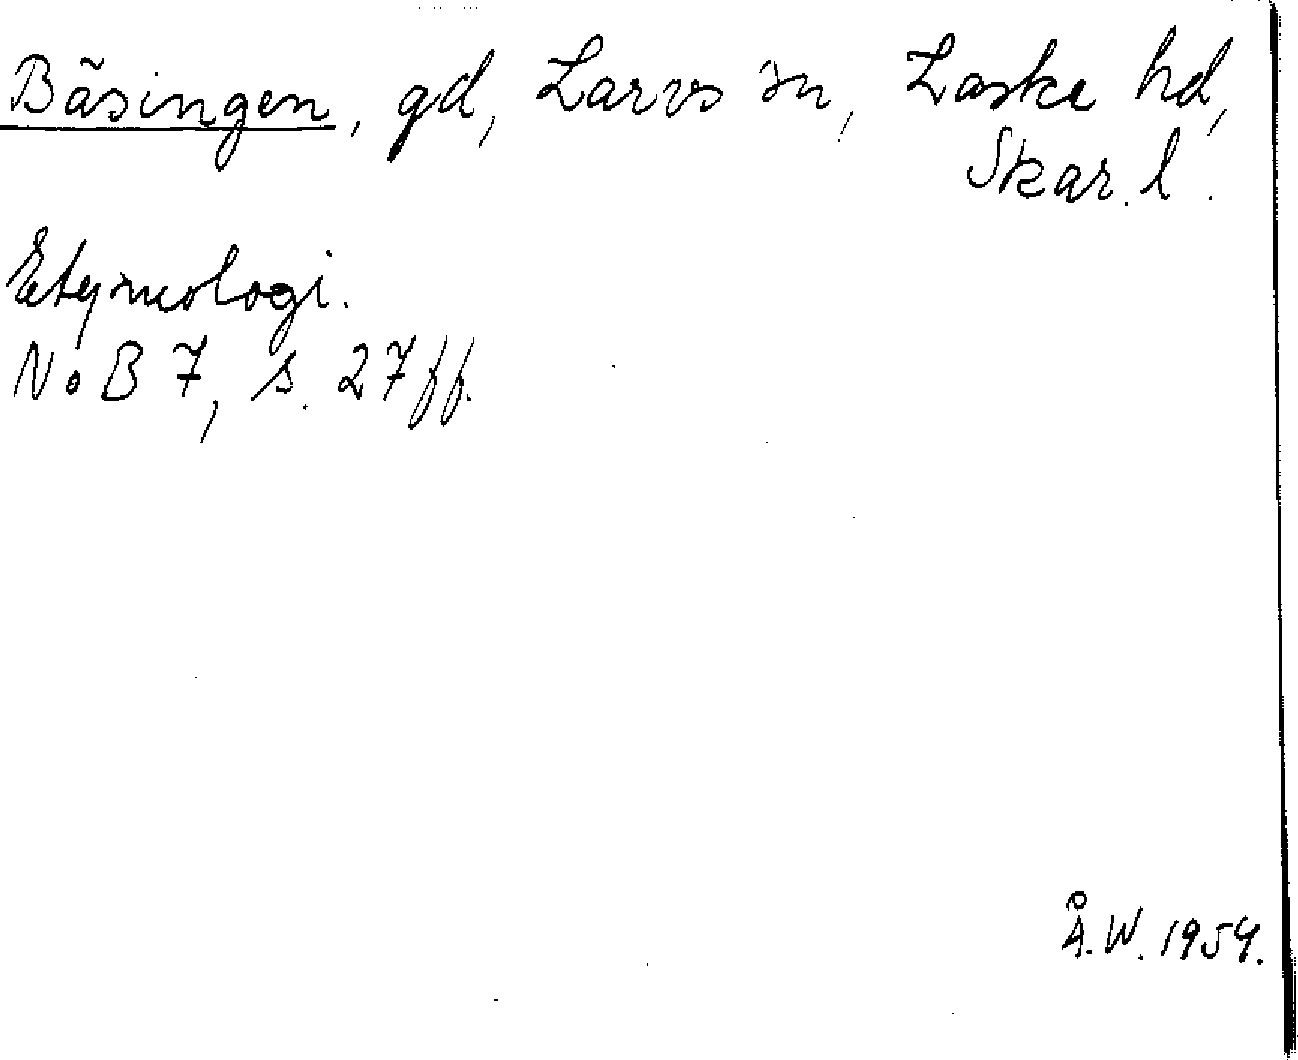 Bäsingen, gd, Larvs sn, Laske hd,
Skar. l.
Etymologi.
NoB 7, s. 27 ff.
Å.W. 1954.